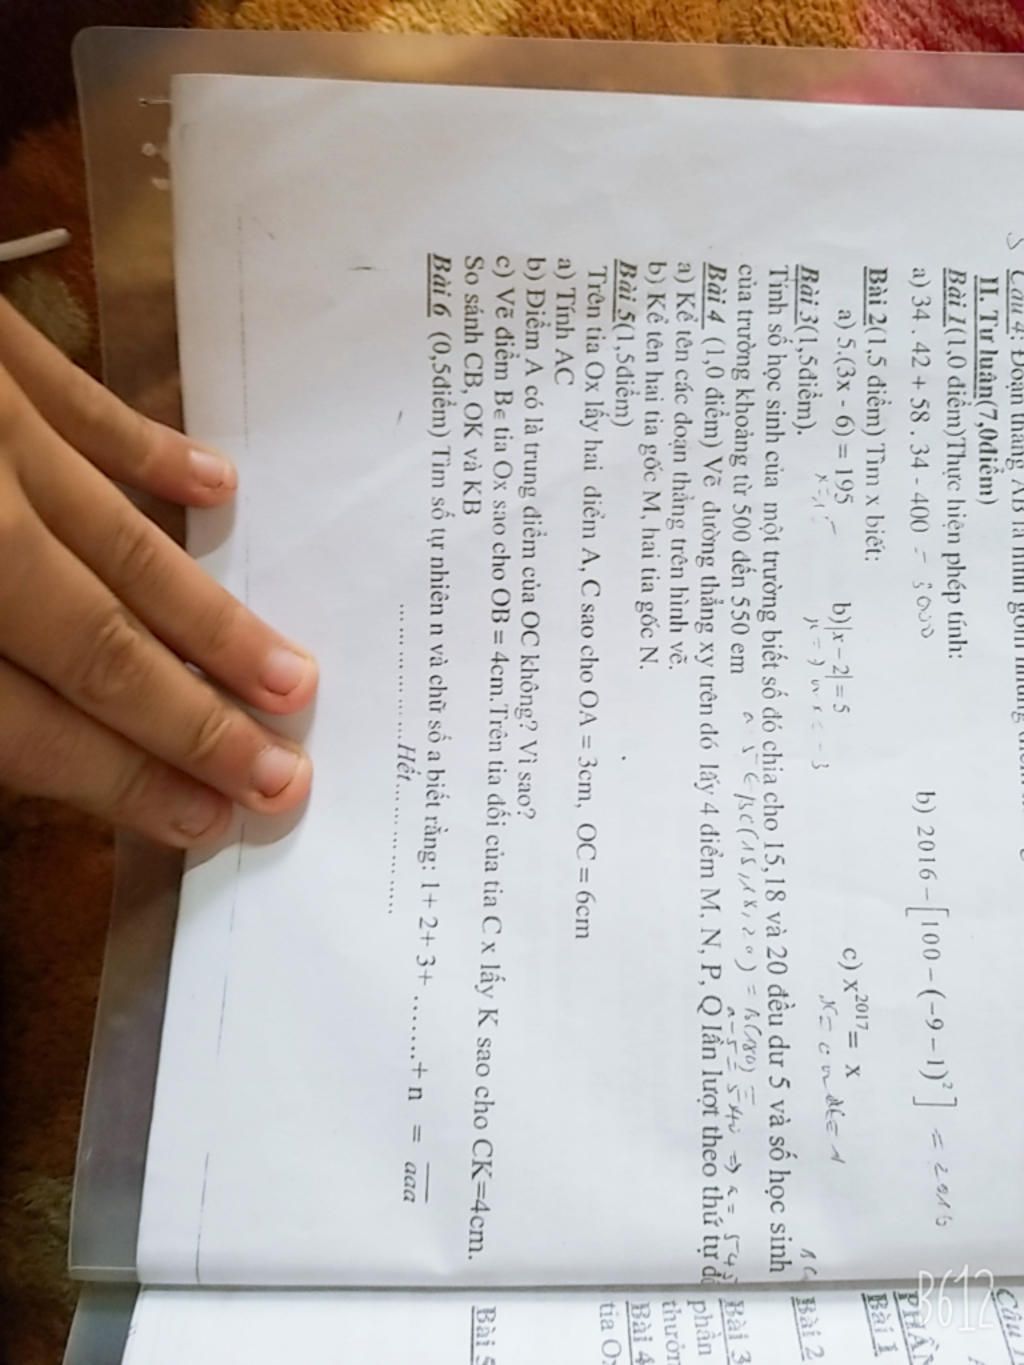 Câu 4: Đoạn thẳng AB là hình gồm những
II. Tự luận(7,0điểm)
Bài 1(1,0 điểm)Thực hiện phép tính:
a) 34 . 42 + 58 . 34 - 400 = 3000 b) 2016 – [100 – (–9 – 1)²] = 2016
Bài 2(1,5 điểm) Tìm x biết:
a) 5.(3x - 6) = 195 b)|x – 2| = 5 c) x²⁰¹⁷ = x
Bài 3(1,5điểm).
Tính số học sinh của một trường biết số đó chia cho 15,18 và 20 đều dư 5 và số học sinh
của trường khoảng từ 500 đến 550 em
Bài 4 (1,0 điểm) Vẽ đường thẳng xy trên đó lấy 4 điểm M, N, P, Q lần lượt theo thứ tự đó
a) Kể tên các đoạn thẳng trên hình vẽ.
b) Kể tên hai tia gốc M, hai tia gốc N.
Bài 5(1,5điểm)
Trên tia Ox lấy hai điểm A, C sao cho OA = 3cm, OC = 6cm
a) Tính AC
b) Điểm A có là trung điểm của OC không? Vì sao?
c) Vẽ điểm B∈ tia Ox sao cho OB = 4cm.Trên tia đối của tia C x lấy K sao cho CK=4cm.
So sánh CB, OK và KB
Bài 6 (0,5điểm) Tìm số tự nhiên n và chữ số a biết rằng: 1+ 2+ 3+ …….+ n = aaa
………………Hết……………
Câu 1
PHẦN
Bài 1
Bài 2
Bài 3
phần
thưởn
Bài 4
tia O
Bài 5
B612